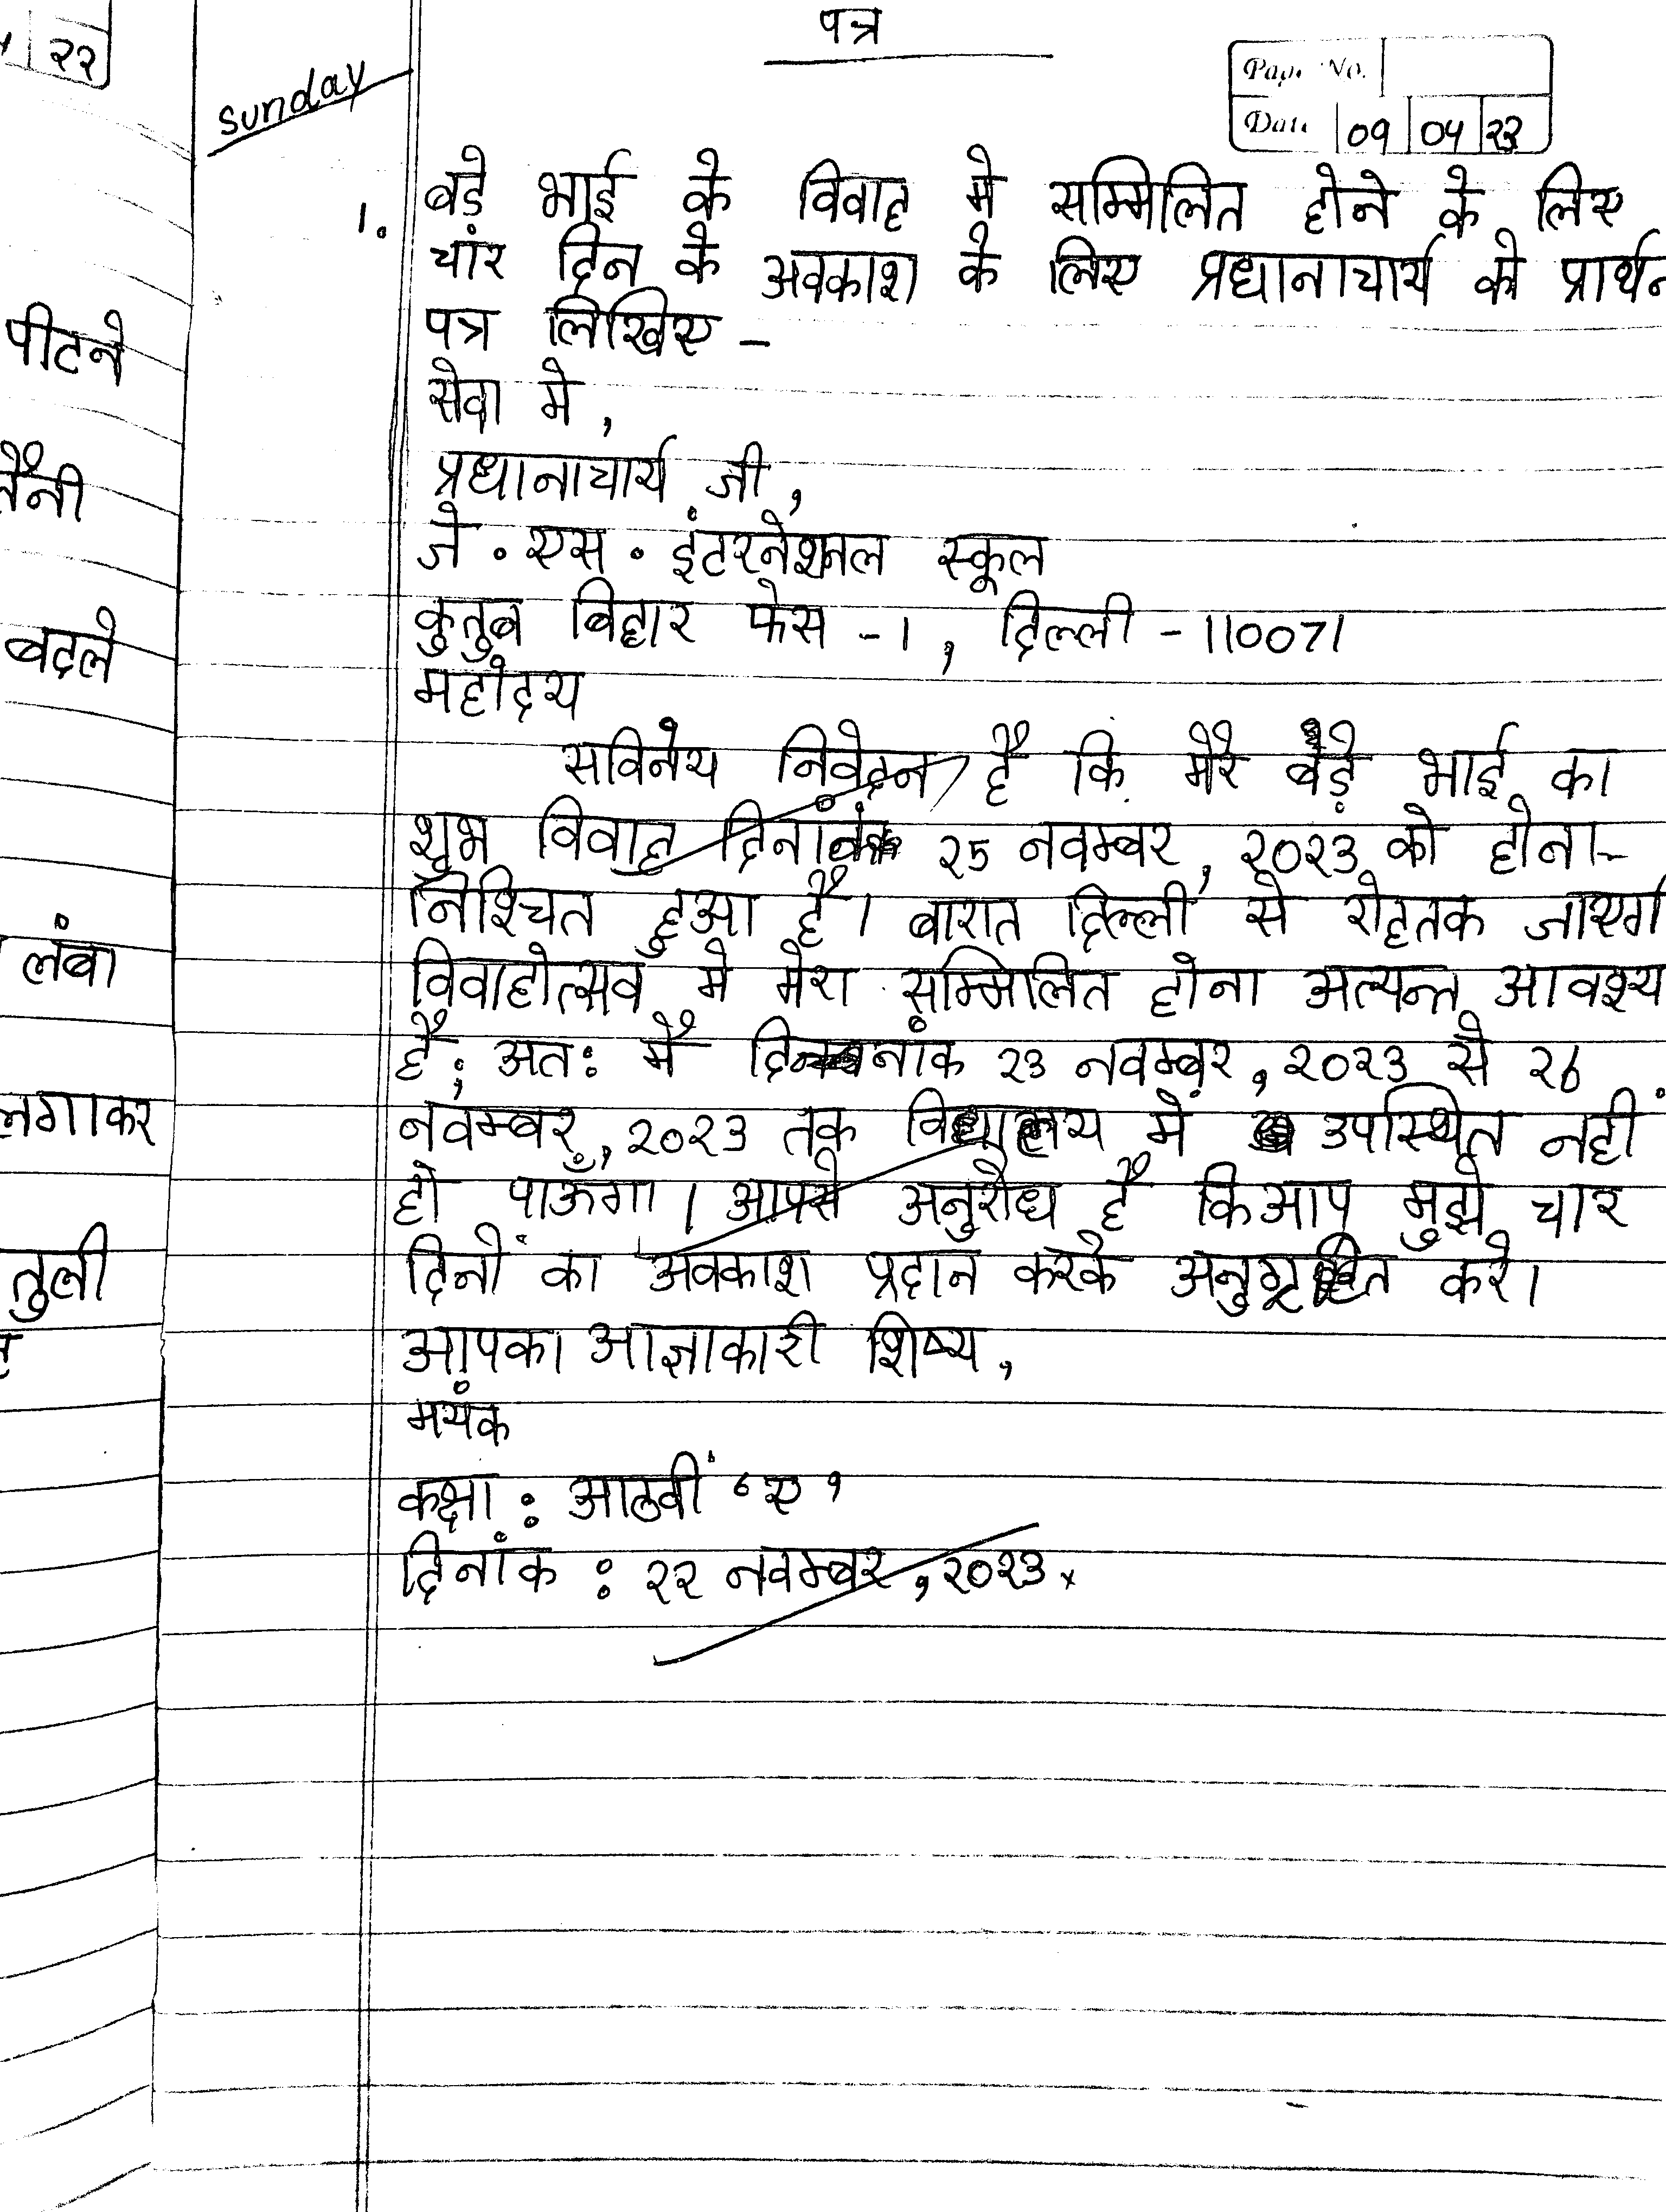 २२
पीटने
बदले
लंबा
लगाकर
तुली
पत्र
sunday
Page No.
Date 09 04 23
1. बडे़ भाई के विवाह मे सम्मिलित होने के लिए
चांर दिन के अवकाश के लिए प्रधानाचार्य को प्रार्थन
पत्र लिखिए -
सेवा मे,
प्रधानाचार्य जी,
जे. एस. इंटरनेशनल स्कूल
कुतुब बिहार फेस -1, दिल्ली -110071
महोदय
सविनय निवेदन है कि मेरे बड़े भाई का
शुभ विवाह दिनांक २5 नवम्बर, २०२३ को होना-
निश्चित हुआ है। बारात दिल्ली से रोहतक जाएगी
विवाहोत्सव मे मेरा सम्मिलित होना अत्यन्त आवश्य
है; अतः मैं दिनांक २३ नवम्बर, २०२३ से २6
नवम्बर, २०२३ तक विद्यालय में उपस्थित नहीं
हो पाऊँगा। आपसे अनुरोध है कि आप मुझे चार
दिनों का अवकाश प्रदान करके अनुगृहित करे।
आपका आज्ञाकारी शिष्य,
मयंक
कक्षा : आठवीं ‘ए’
दिनांक : २२ नवम्बर, २०२३